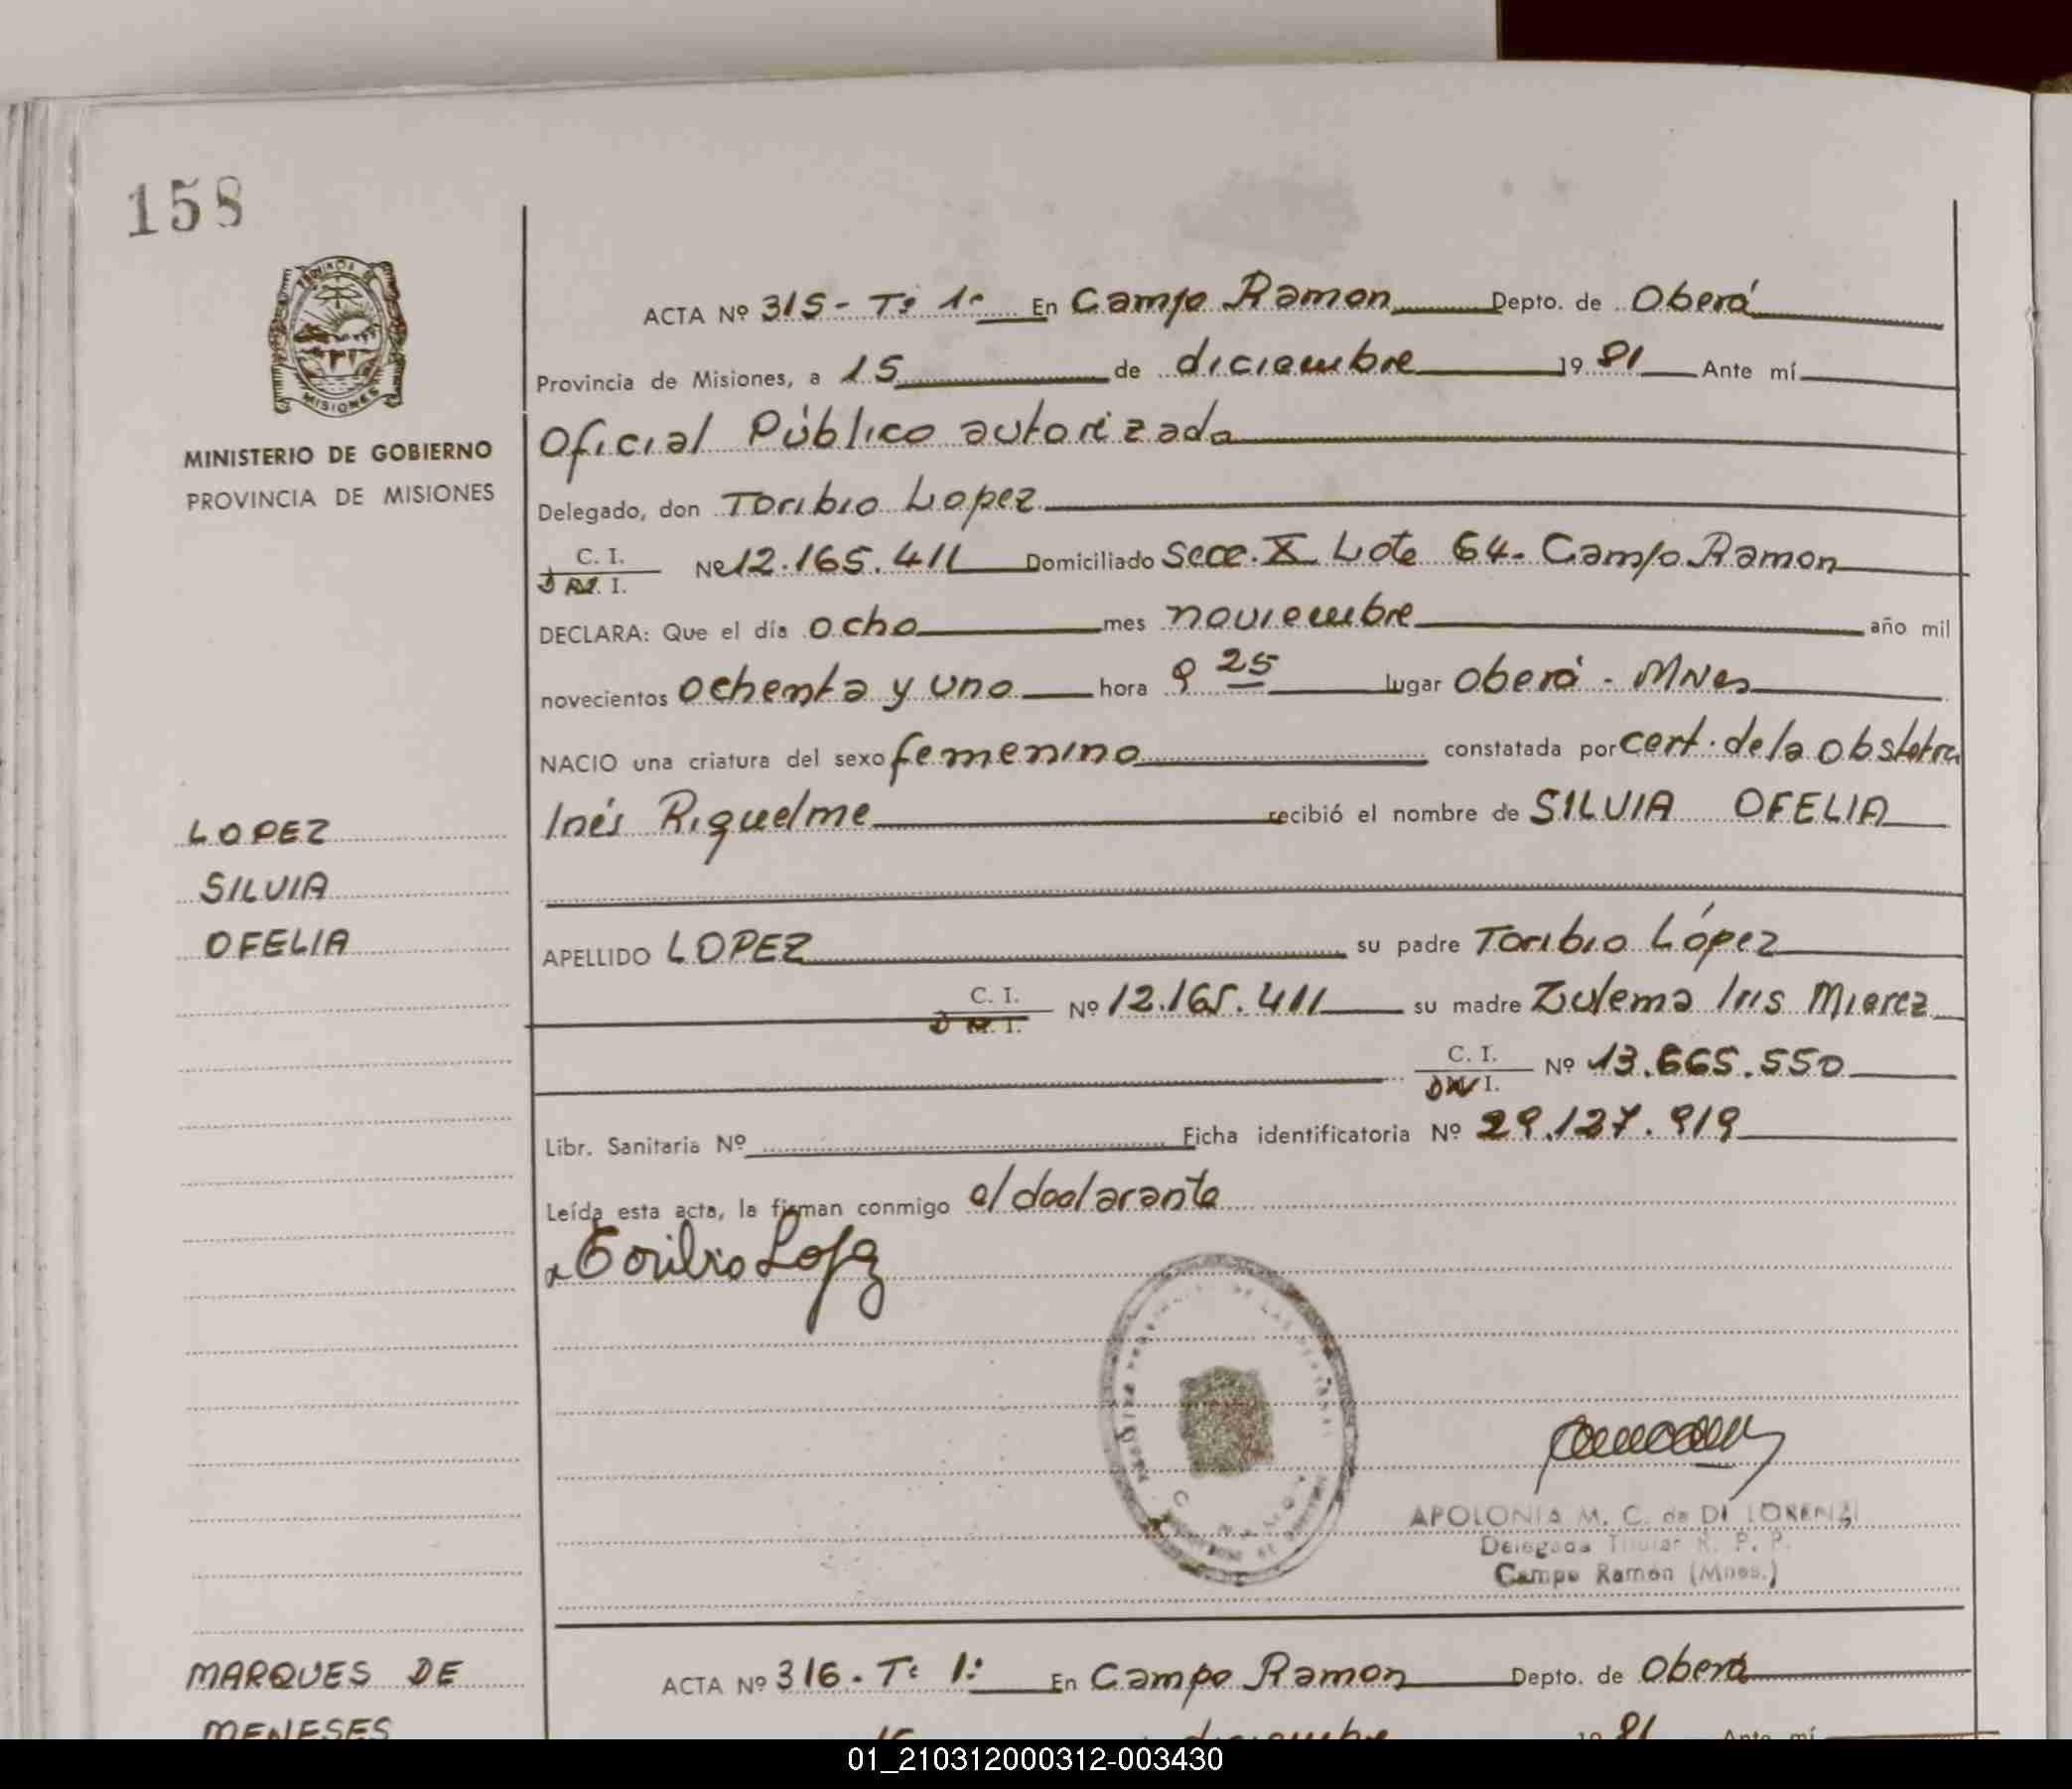 158
MISIONES
MINISTERIO DE GOBIERNO
PROVINCIA DE MISIONES
ACTA Nº 315 - Tº 1º En Campo Ramon Depto. de Oberá
Provincia de Misiones, a 15 de diciembre 1981 Ante mí
Oficial Público autorizada
Delegado, don Toribio Lopez
C. I.
D N. I. Nº 12.165.411 Domiciliado Secc. X Lote 64- Campo Ramon
DECLARA: Que el día ocho mes noviembre año mil
novecientos ochenta y uno hora 9 25 lugar Oberá - MNes
NACIO una criatura del sexo femenino constatada por cert. de la obstetra
Inés Riquelme recibió el nombre de SILVIA OFELIA
LOPEZ
SILVIA
OFELIA
APELLIDO LOPEZ su padre Toribio López
C. I.
D N. I. Nº 12.165.411 su madre Zulema Iris Mierez
C. I.
DN I. Nº 13.665.550
Libr. Sanitaria Nº Ficha identificatoria Nº 29.127.919
Leída esta acta, la firman conmigo el declarante
Toribio Lopez
APOLONIA M. C. de DI LORENZI
Delegada Titular R. P. P.
Campo Ramón (Mnes.)
MARQUES DE
MENESES
ACTA Nº 316 - Tº 1º En Campo Ramon Depto. de Oberá
15 diciembre 1981 Ante mí
01_210312000312-003430